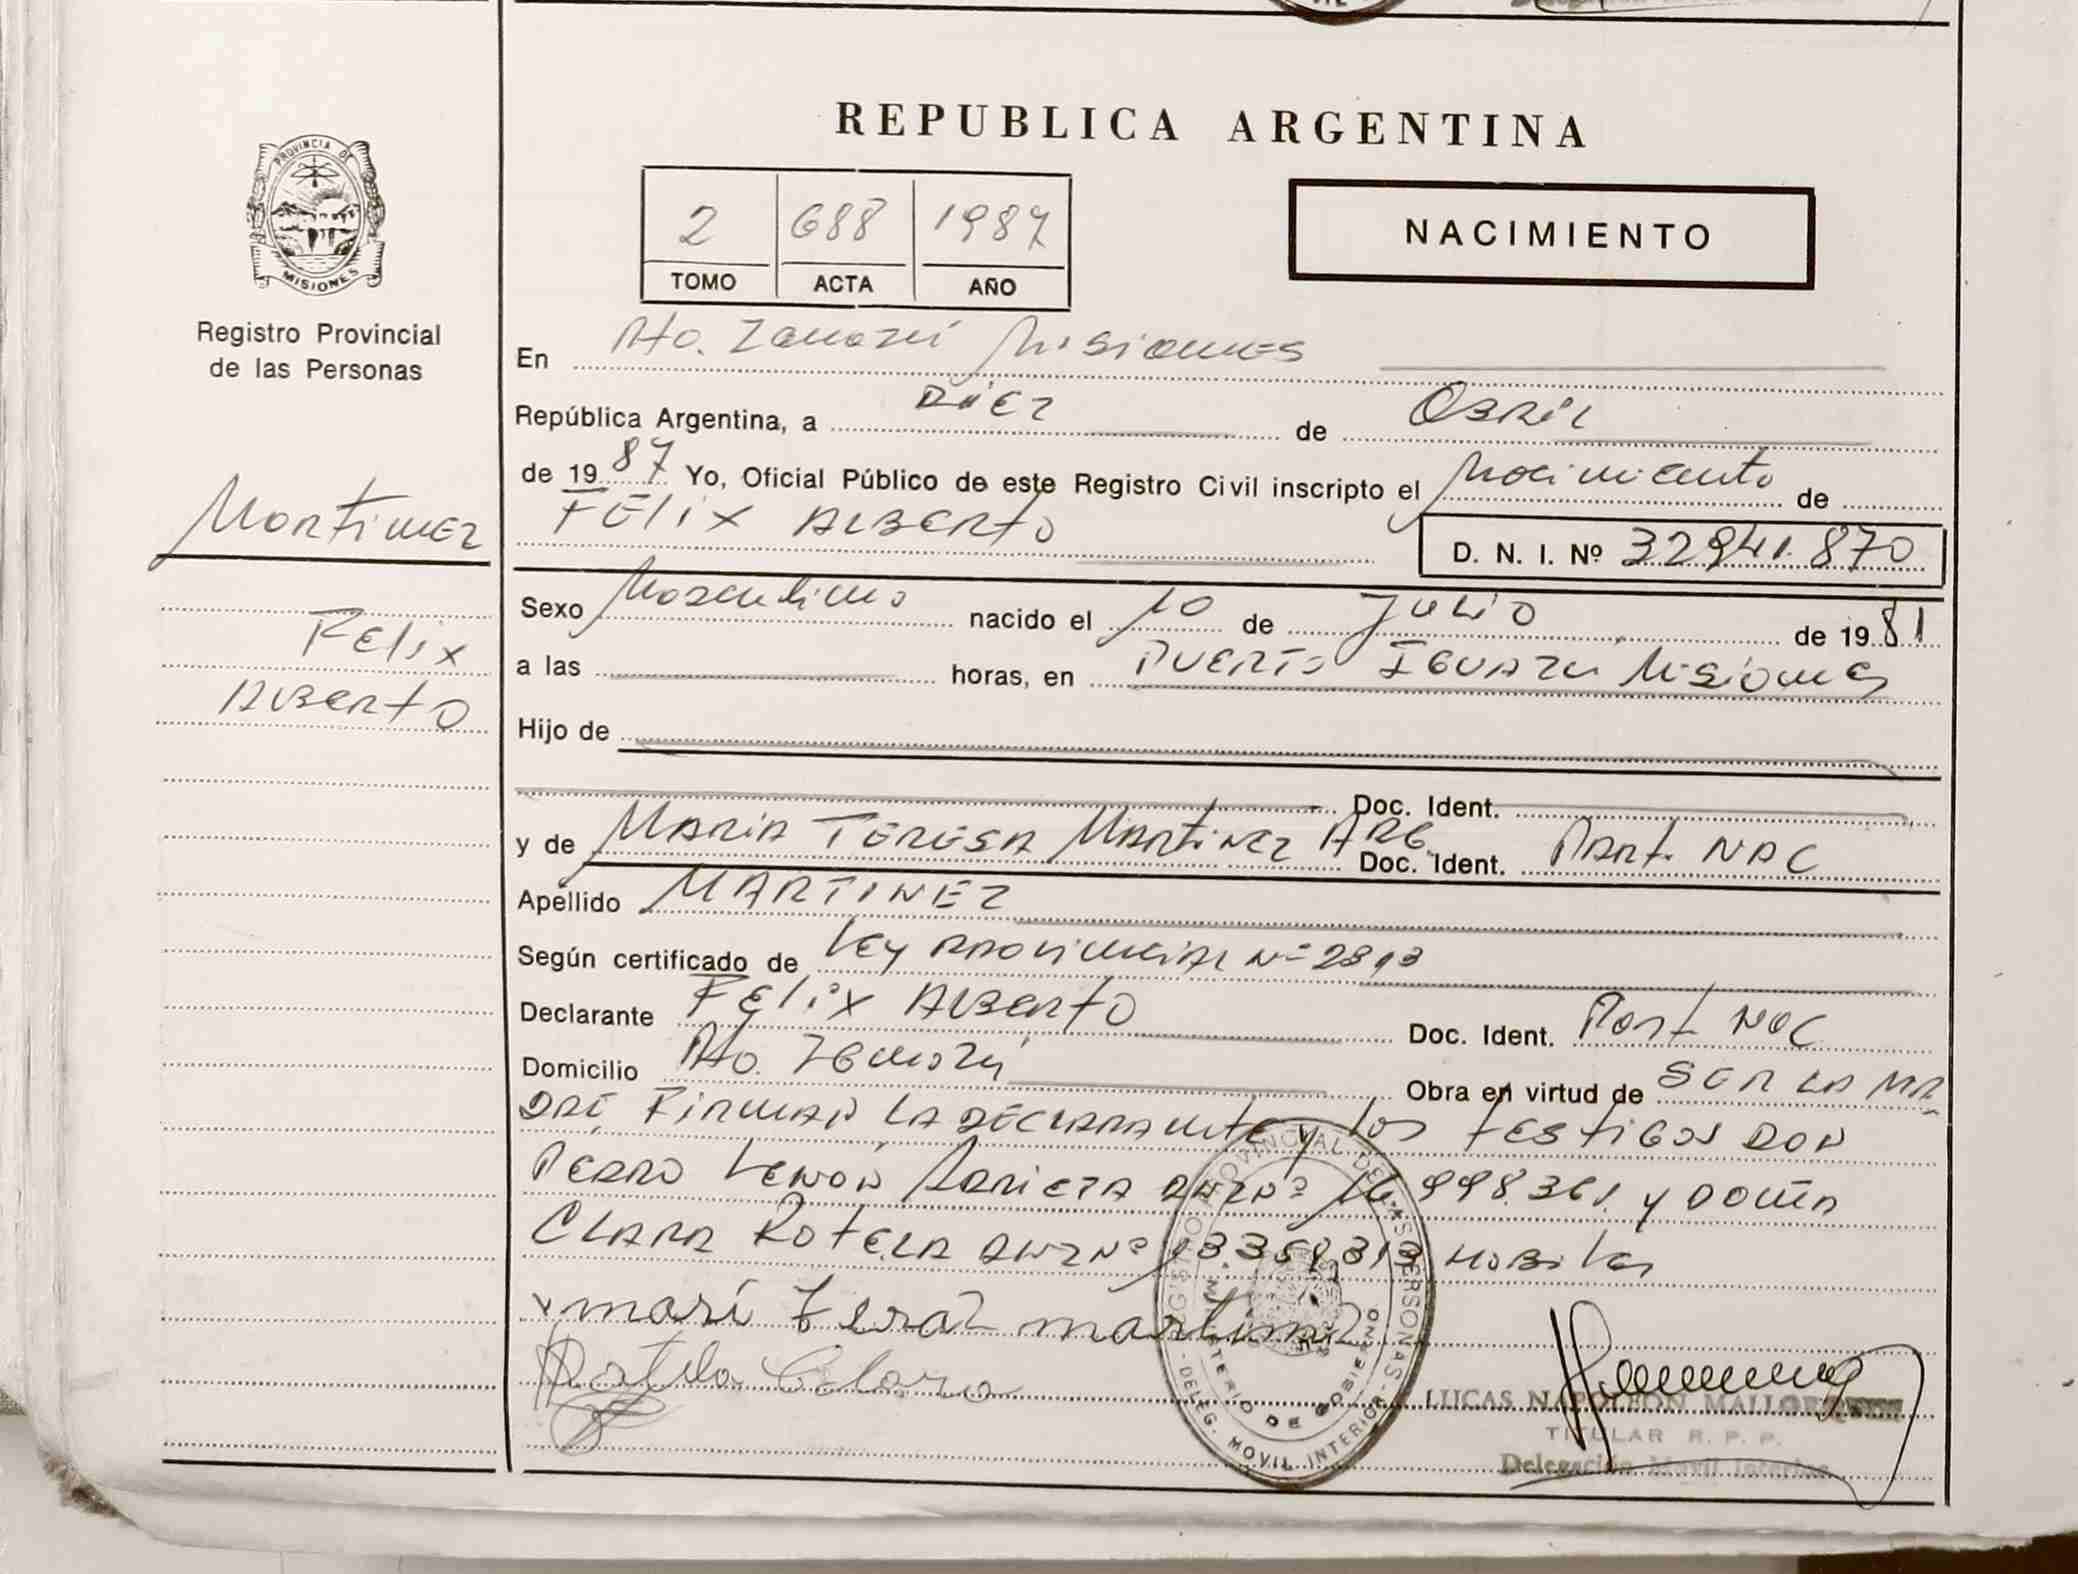 REPUBLICA ARGENTINA
PROVINCIA DE
MISIONES
Registro Provincial
de las Personas
2 688 1987
TOMO ACTA AÑO
NACIMIENTO
En Pto. Misiones
República Argentina, a Diez de Abril
de 1987 Yo, Oficial Público de este Registro Civil inscripto el Nacimiento de
FELIX ALBERTO
D. N. I. Nº 32941.870
Martinez
Felix
Alberto
Sexo Masculino nacido el 10 de Julio de 1981
a las horas, en PUERTO IGUAZU Misiones
Hijo de
Doc. Ident.
y de MARIA TERESA MARTINEZ ARG. Doc. Ident. Part. NAC
Apellido MARTINEZ
Según certificado de Ley PROVINCIAL Nº
Declarante FELIX ALBERTO Doc. Ident. Part NAC
Domicilio Pto. Obra en virtud de SER LA MA-
DRE FIRMAN LA DECLARANTE y los TESTIGOS DON
PEDRO DNI Nº 16.998.361. y DOÑA
CLARA ROTELA DNI Nº
mari martinez
Rotela Clara
REGISTRO PROVINCIAL DE LAS PERSONAS
MINISTERIO DE GOBIERNO
DELEG. MOVIL INTERIOR
LUCAS NAPOLEON
TITULAR R. P. P.
Delegación Movil Interior